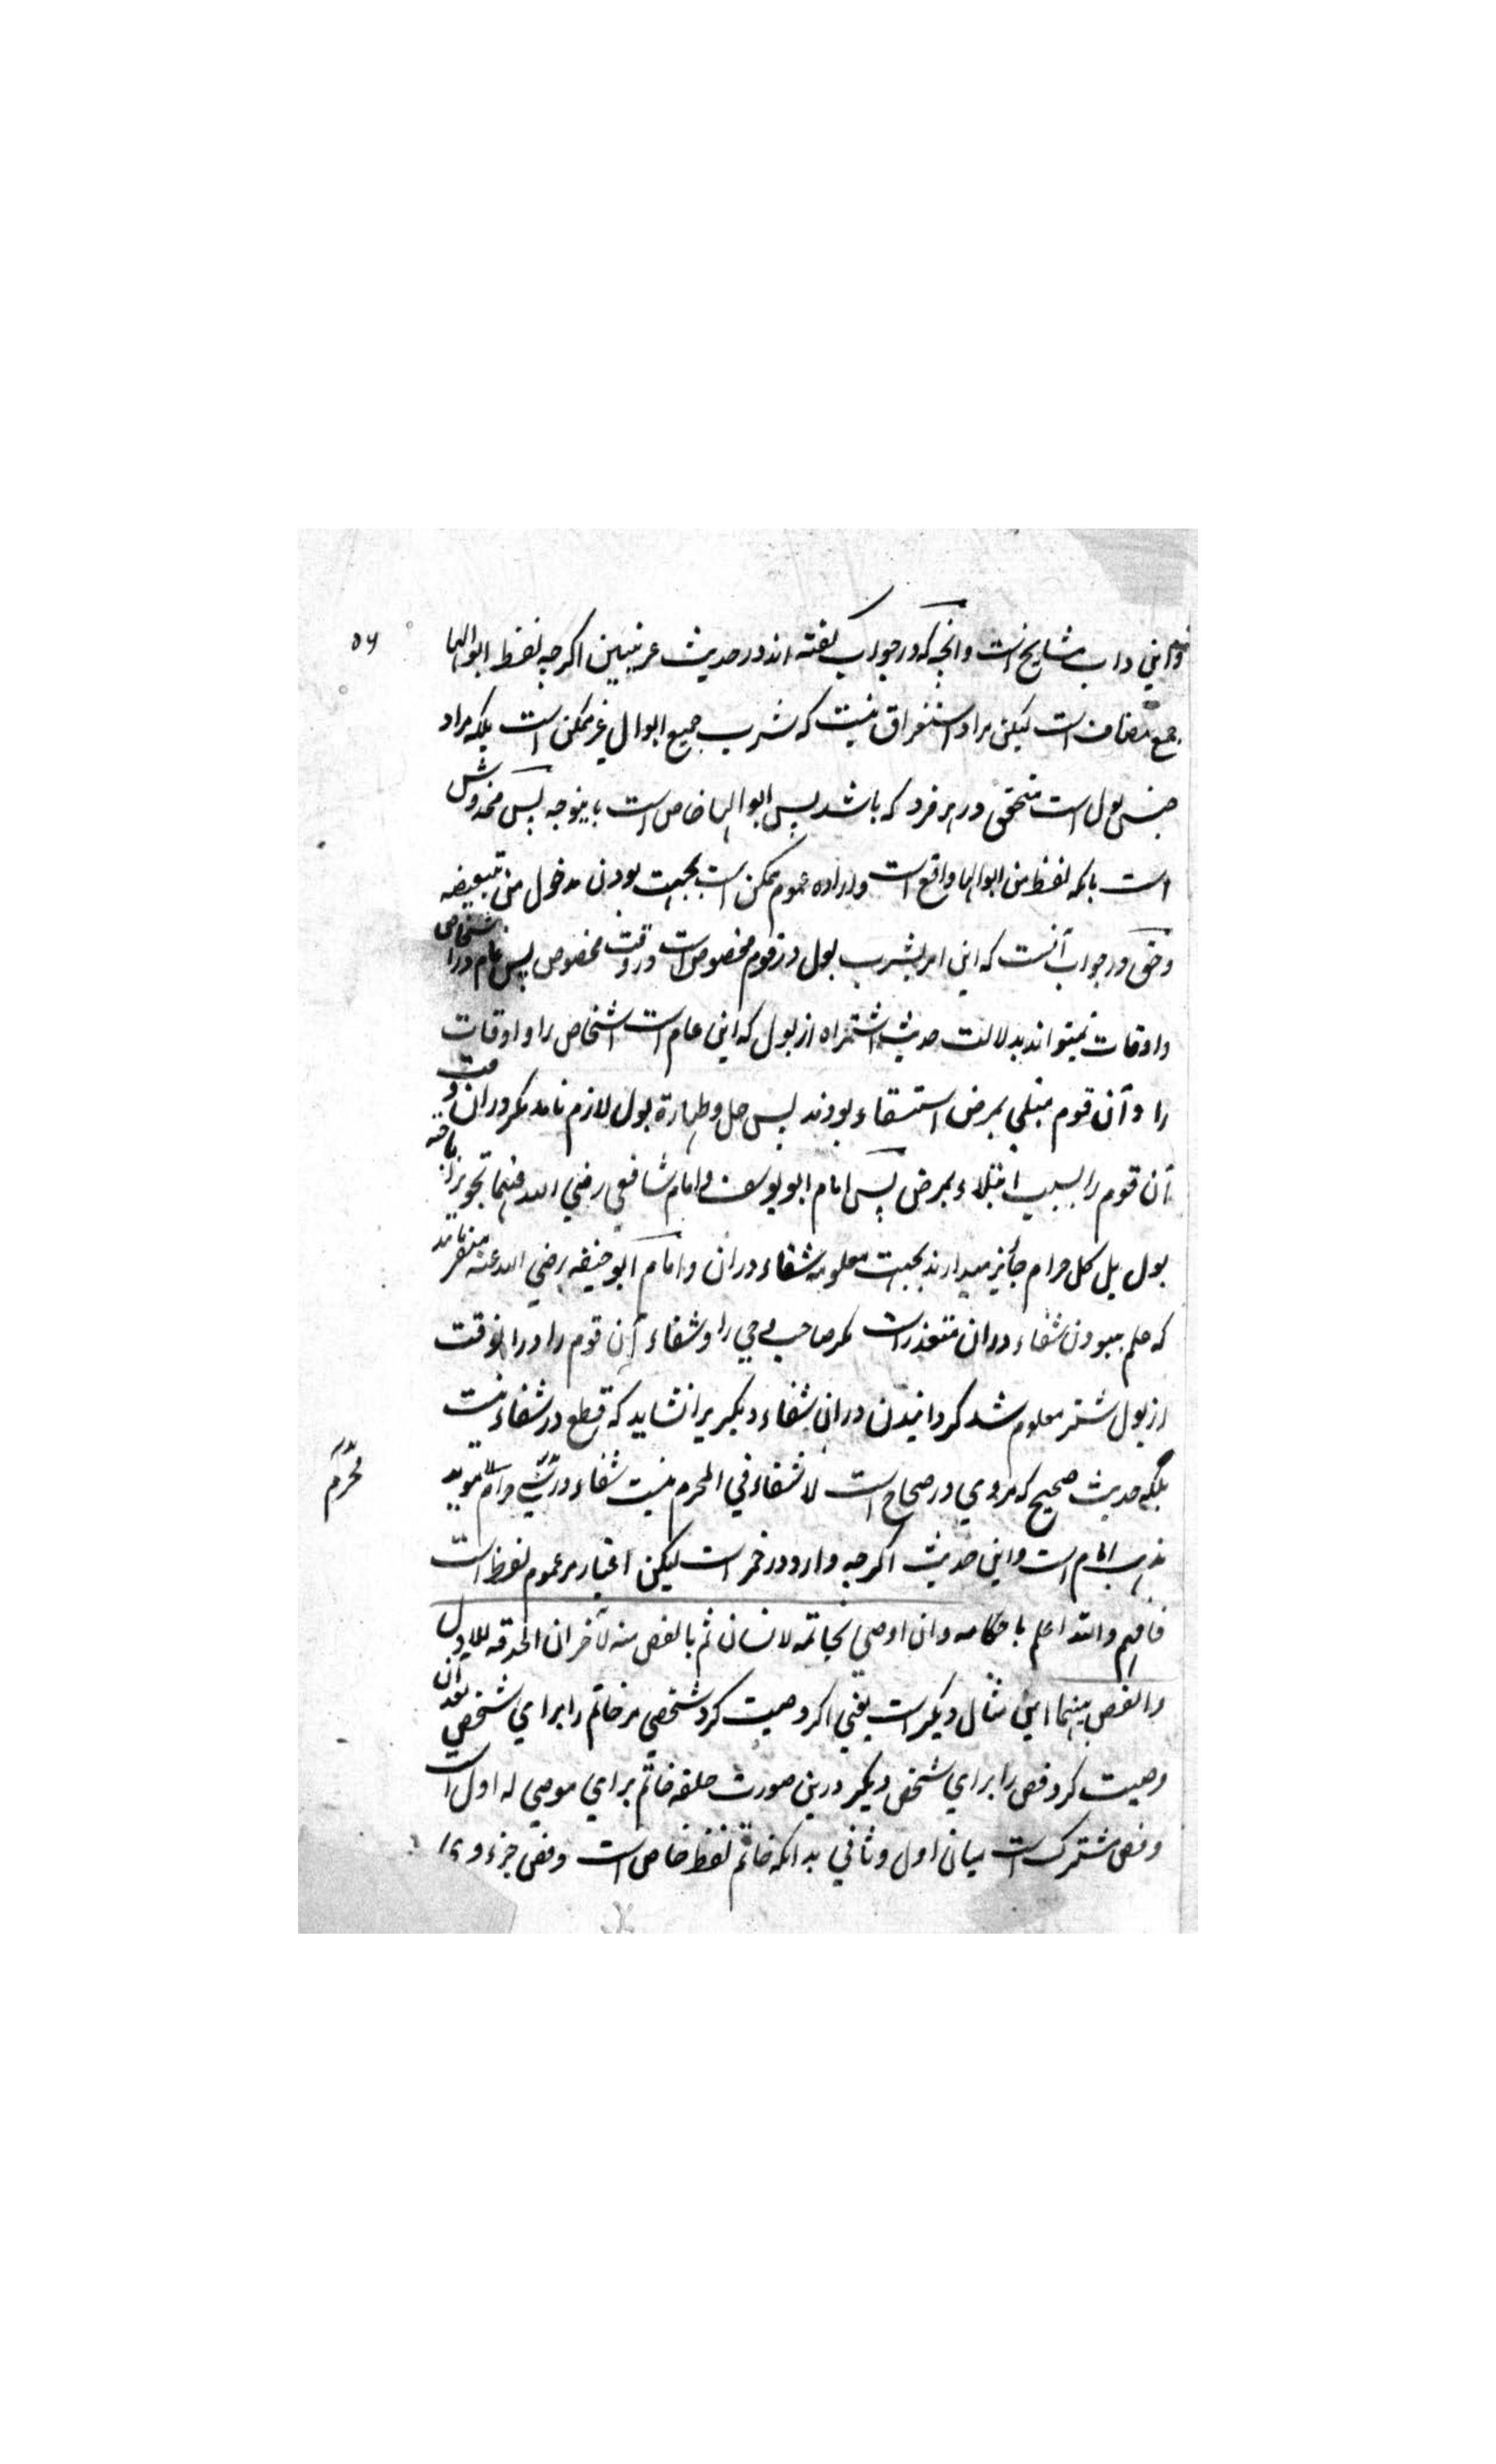 واین داب مشایخ است وانچه که در جواب گفته اند در حدیث عرنیین اکرچه لفظ ابوالها
۵۶
جمع مضاف است لیکن مراد استغراق نیست که شرب جمیع ابوال غیر ممکن است بلکه مراد
جنس بول است متحقق در هر فرد که باشد پس ابوالها خاص است باینوجه پس مخدوش
است بانکه لفظ من ابوالها واقع است واراده عموم ممکن است بجهت بودن مدخول من تبعیضیه
وحق در جواب آنست که این امر بشرب بول در قوم مخصوص است ودر وقت مخصوص پس عام در اشخاص
واوقات نمیتواند بدلالت حدیث استنزاه از بول که این عام است اشخاص را واوقات
را وآن قوم مبتلی بمرض استسقاء بودند پس حل وطهارة بول لازم نامد مکر در ان وقت
آن قوم را بسبب ابتلاء بمرض پس امام ابو یوسف وامام شافعی رضی الله عنهما تجویز اباحة
بول بل کل حرام جائز میدارند بجهت معلومیه شفاء دران وامام ابو حنیفه رضی الله عنه میفرمایند
که علم ببودن شفاء دران متعذر است مکر صاحب وحی را وشفاء آن قوم را در انوقت
از بول شتر معلوم شد کردانیدن دران شفاء دیکریرا نشاید که قطع در شفاء نیست
بلکه حدیث صحیح که مروی در صحاح است لا شفاء فی المحرم نیست شفاء در شی حرام موید
محرم
مذهب امام است واین حدیث اکرچه وارد در خمر است لیکن اعتبار مر عموم لفظ است
فافهم والله اعلم باحکامه وان اوصی بخاتمه لانسان ثم بالفص منه لآخر ان الحلقه للاول
والفص بینهما این مثال دیکر است یعنی اکر وصیت کرد شخصی مر خاتم را برای شخصی بعد ان
وصیت کرد فص را برای شخص دیکر درین صورت حلقه خاتم برای موصی له اول است
وفص مشترک است میان اول وثانی بدانکه خاتم لفظ خاص است وفص جزء وی